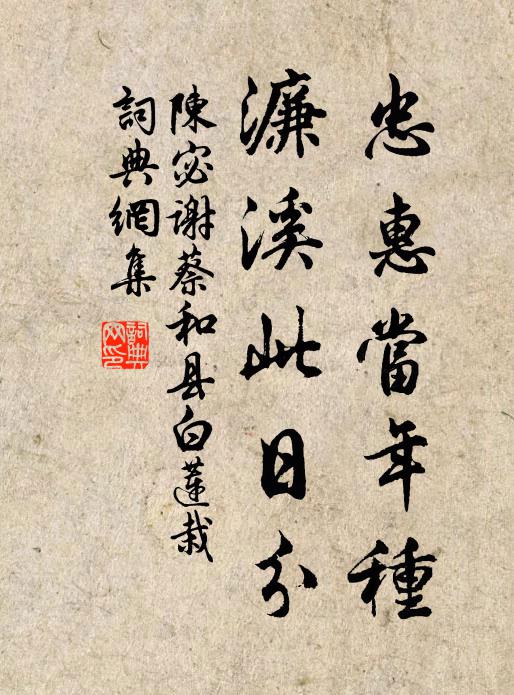 忠惠當年種
濂溪此日分
陳宓谢蔡和县白蓮栽
詞典網集
詞典网印